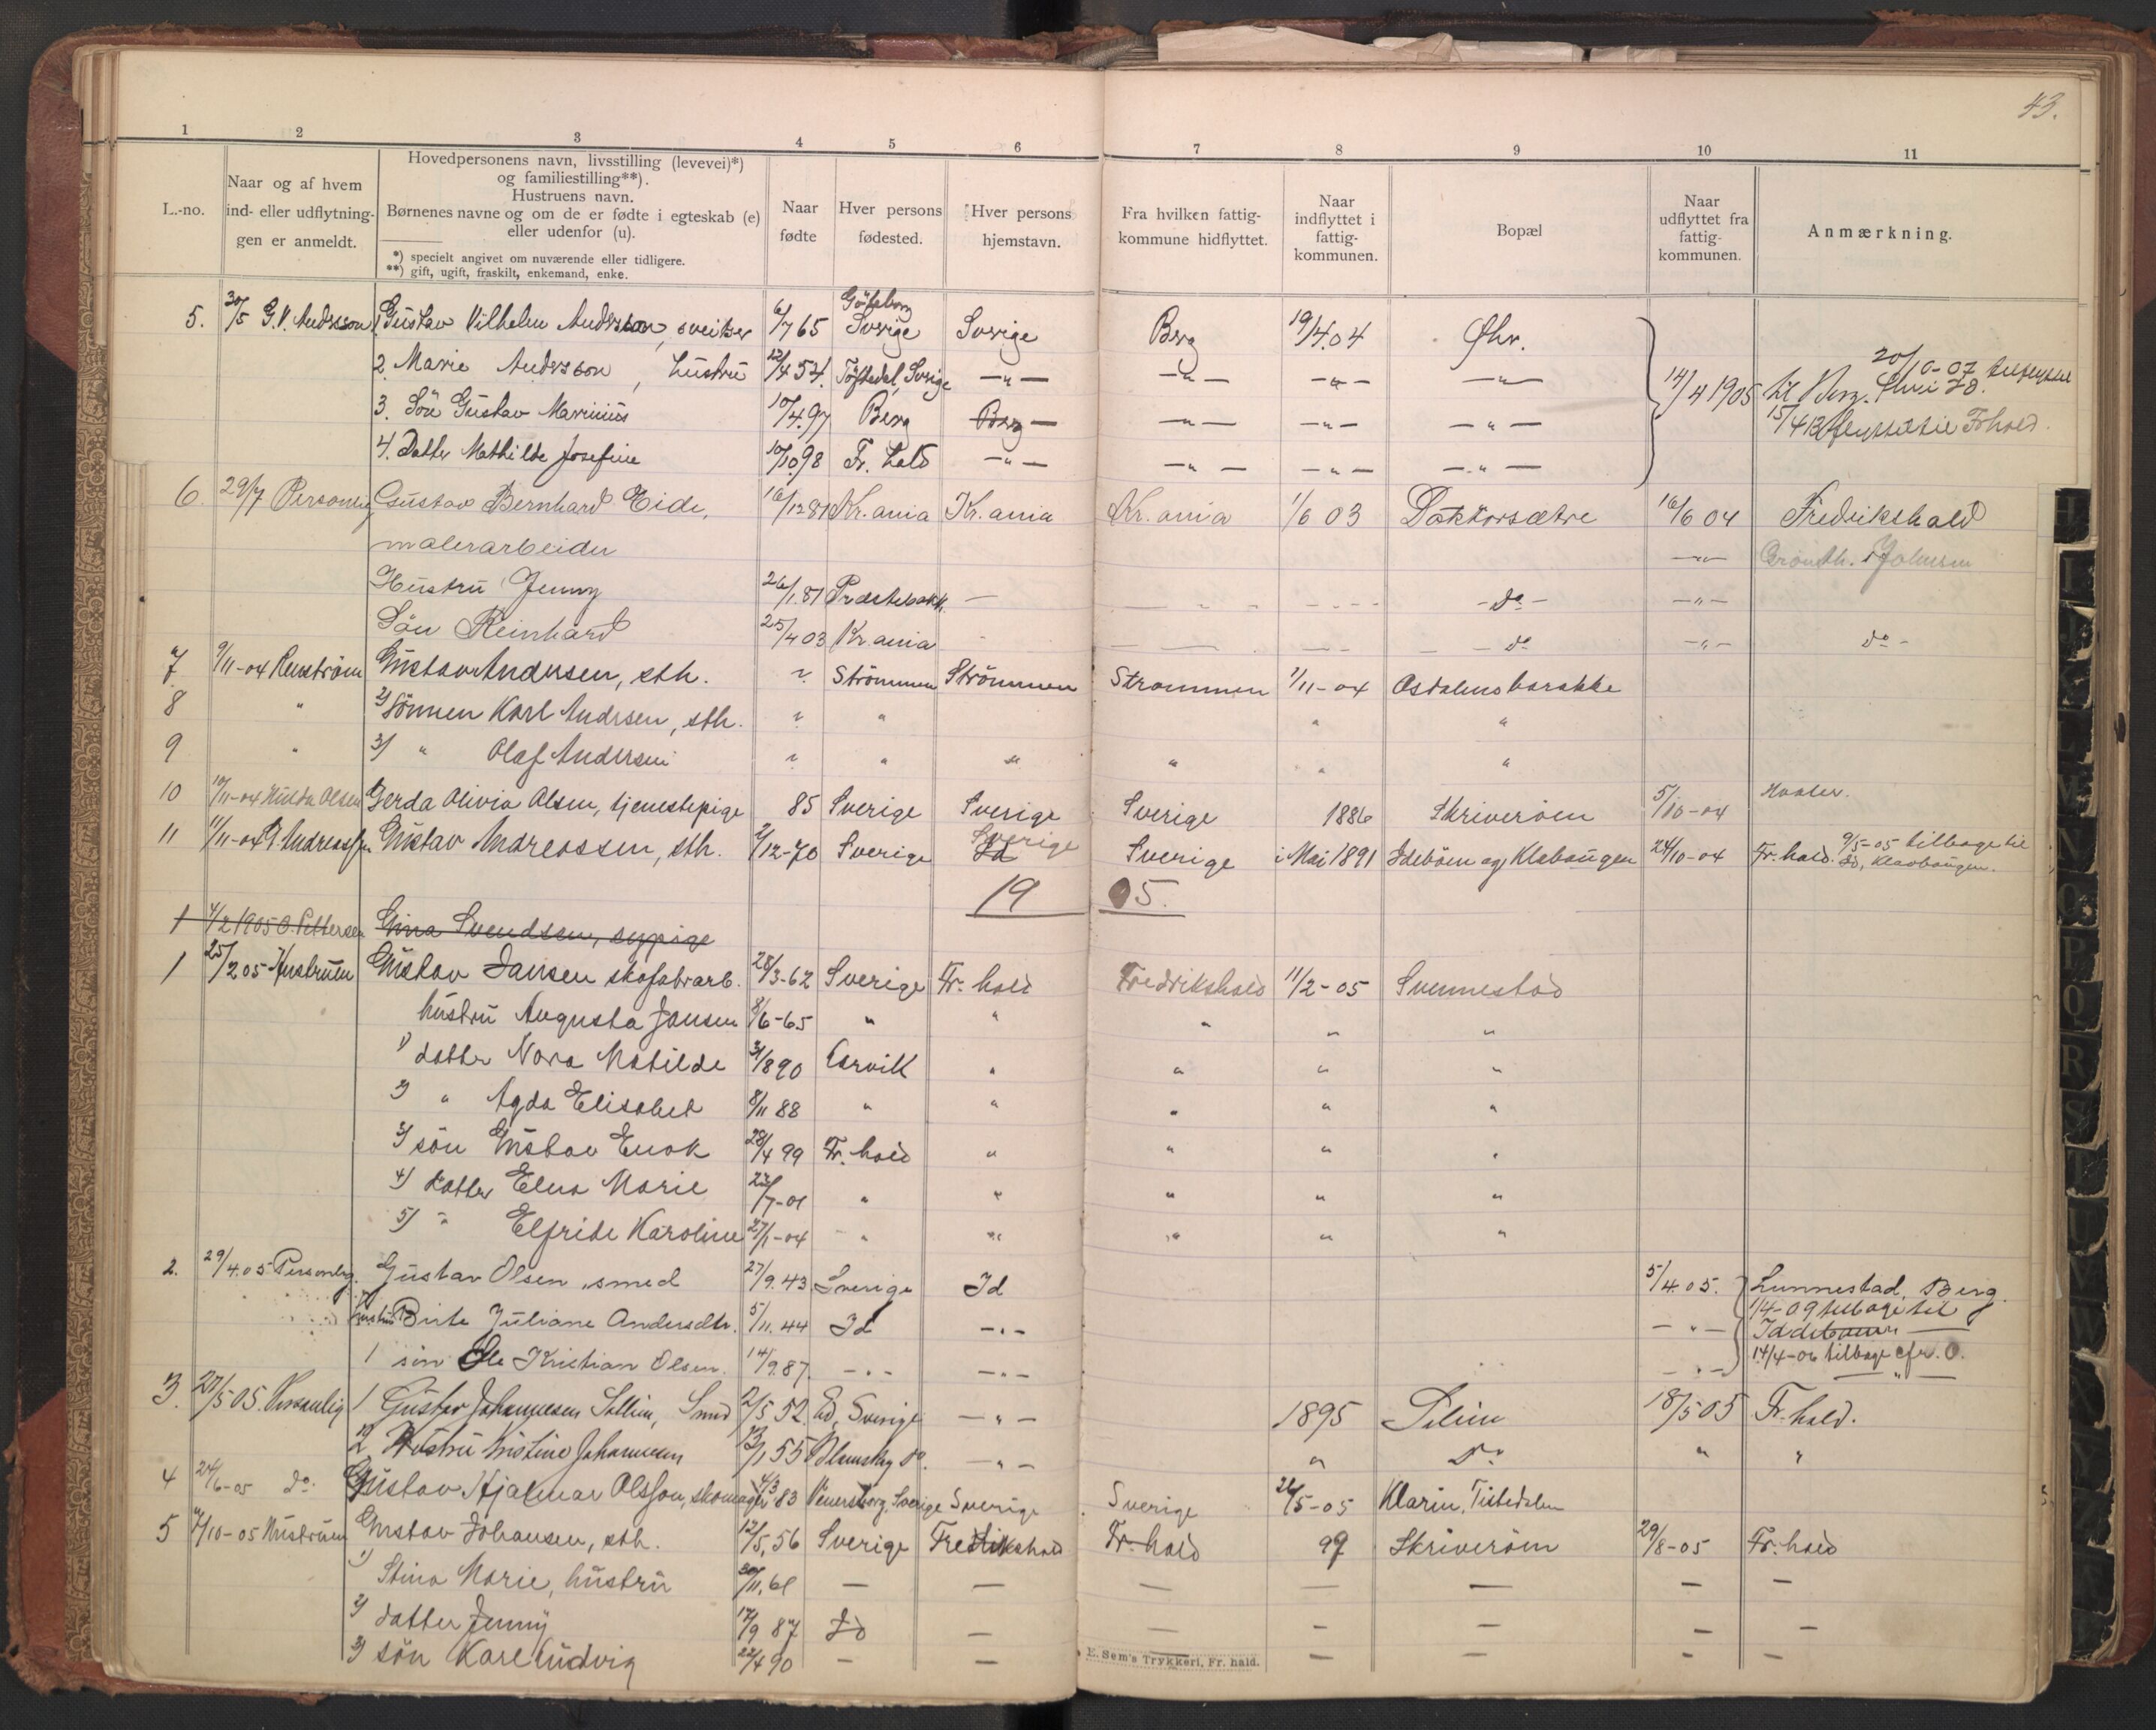 43.
1 2 3 4 5 6 7 8 9 10 11
L.-no.
Naar og af hvem
ind- eller udflytnin-
gen er anmeldt.
Hovedpersonens navn, livsstilling (levevei)*)
og familiestilling**).
Hustruens navn.
Børnenes navne og om de er fødte i egteskab (e)
eller udenfor (u).
*) specielt angivet om nuværende eller tidligere.
**) gift, ugift, fraskilt, enkemand, enke.
Naar
fødte
Hver persons
fødested.
Hver persons
hjemstavn.
Fra hvilken fattig-
kommune hidflyttet.
Naar
indflyttet i
fattig-
kommunen.
Bopæl
Naar
udflyttet fra
fattig-
kommunen.
Anmærkning.
Göteborg
5. 30/5 G.V. Andersson 1 Gustav Vilhelm Andersson, sveitser 6/7 65 Sverige Sverige Berg 19/4.04 Øhr.
2. Marie Andersson, hustru 12/4 54. Töftedal, Sverige —"— —"— —"— —"— 14/4 1905 til Berg. 20/10-07 tilflyttet
3. Sön Gustav Marinius 10/4.97 Berg Berg — —"— —"— —"— 15/4 13 flyttet til Frhald.
4. Datter Mathilde Josefine 10/10.98 Fr. hald —"— —"— —"— —"—
6. 29/7 Personlig Gustav Bernhard Eide, 16/12 81 Kr.ania Kr.ania Kr.ania 1/6 03 Doktorsætre 16/6 04 Fredrikshald
malerarbeider —"— Johnsen
Hustru Jenny 26/1.81 Præstebakk. — do — —"—
Sön Reinhard 25/4 03 Kr.ania do —"— do -
7 9/11-04 Renström Gustav Andersen, sth. ? Strömmen Strömmen Strømmen 1/11-04 Osdalens barakke
8 " 2) Sönnen Karl Andersen, sth. ? " " "
9 " 3) " Olaf Andersen ? " " " " "
10 10/11-04 Hulda Olsen Gerda Olivia Olsen, tjenestepige 85 Sverige Sverige Sverige 1886 Skriverøen 5/10-04 Hvaler.
11 11/11-04 G. Andreassen Gustav Andreassen, sth. 2/12-70 Sverige Id Sverige Sverige i Mai 1891 Idebøen og Klebaugen 24/10-04 Fr. hald. 9/5-05 tilbage til
Id, Klavbaugen.
19 05.
1 4/2 1905 O. Pettersen Gina Svendsen, sypige
1 25/2 05 Hustruen Gustav Jansen skofabrarb. 28/3-62 Sverige Fr. hald Fredrikshald 11/2-05 Svennestad
hustru Augusta Jansen 8/6-65 " " " " "
1) datter Nora Matilde 31/8 90 Larvik " " " "
2) " Agda Elisabet 8/11 88 " " " " "
3) sön Gustav Enok 28/4 99 Fr. hald " " " "
4) datter Elna Marie 23/7-01 " " " " "
5) " Elfride Karoline 27/1-04 " " " " "
2. 29/4.05 Personlig. Gustav Olsen, smed 27/9.43 Sverige Id 5/4.05. Lunnestad, Berg.
hustru Birte Juliane Andersdtr. 5/11.44 Id —"— —"— 1/4-09 tilbage til
Iddebøen
1 sön Ole Kristian Olsen. 14/9.87. —"— —"— —"— 14/4-06 tilbage cfr. O.
3. 27/5 05. Personlig 1 Gustav Johannesen Sellin, Smed 2/5 52 Ed, Sverige —"— 1895 Selim 18/5 05 Fr. hald.
2 Hustru Kristine Johannesen 13/1 55 do. —"— " Do " "
4 24/6-05 do. Gustav Hjalmar Olsson, skomager 4/3 83 Venersborg, Sverige Sverige Sverige 26/5-05 Klarin, Tistedalen
5 7/10-05 Hustruen Gustav Johansen, sth. 12/5.56 Sverige Fredrikshald Fr. hald 97 Skriverøen 29/8-05 Fr. hald
1) Stina Marie, hustru 30/11.61 — — — — — — —
2) datter Jenny 17/9 87 Id — — — — — —
3) sön Karl Ludvig 22/4 90 — — — — — — —
E. Sem's Trykkeri, Fr. hald.